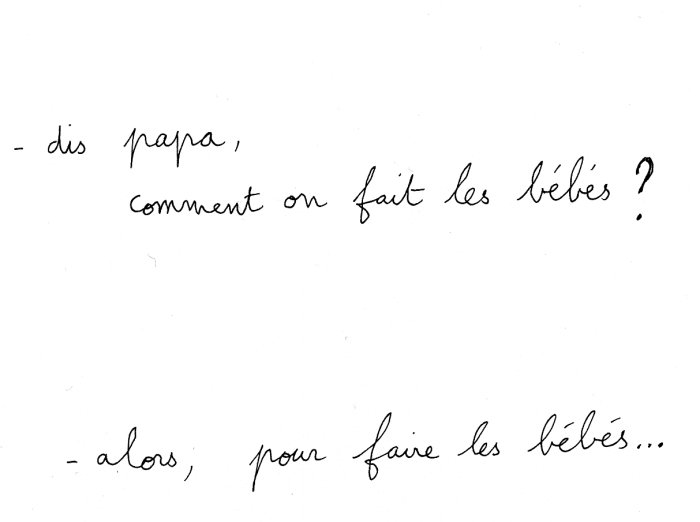 - dis papa,
comment on fait les bébés ?
- alors, pour faire les bébés...